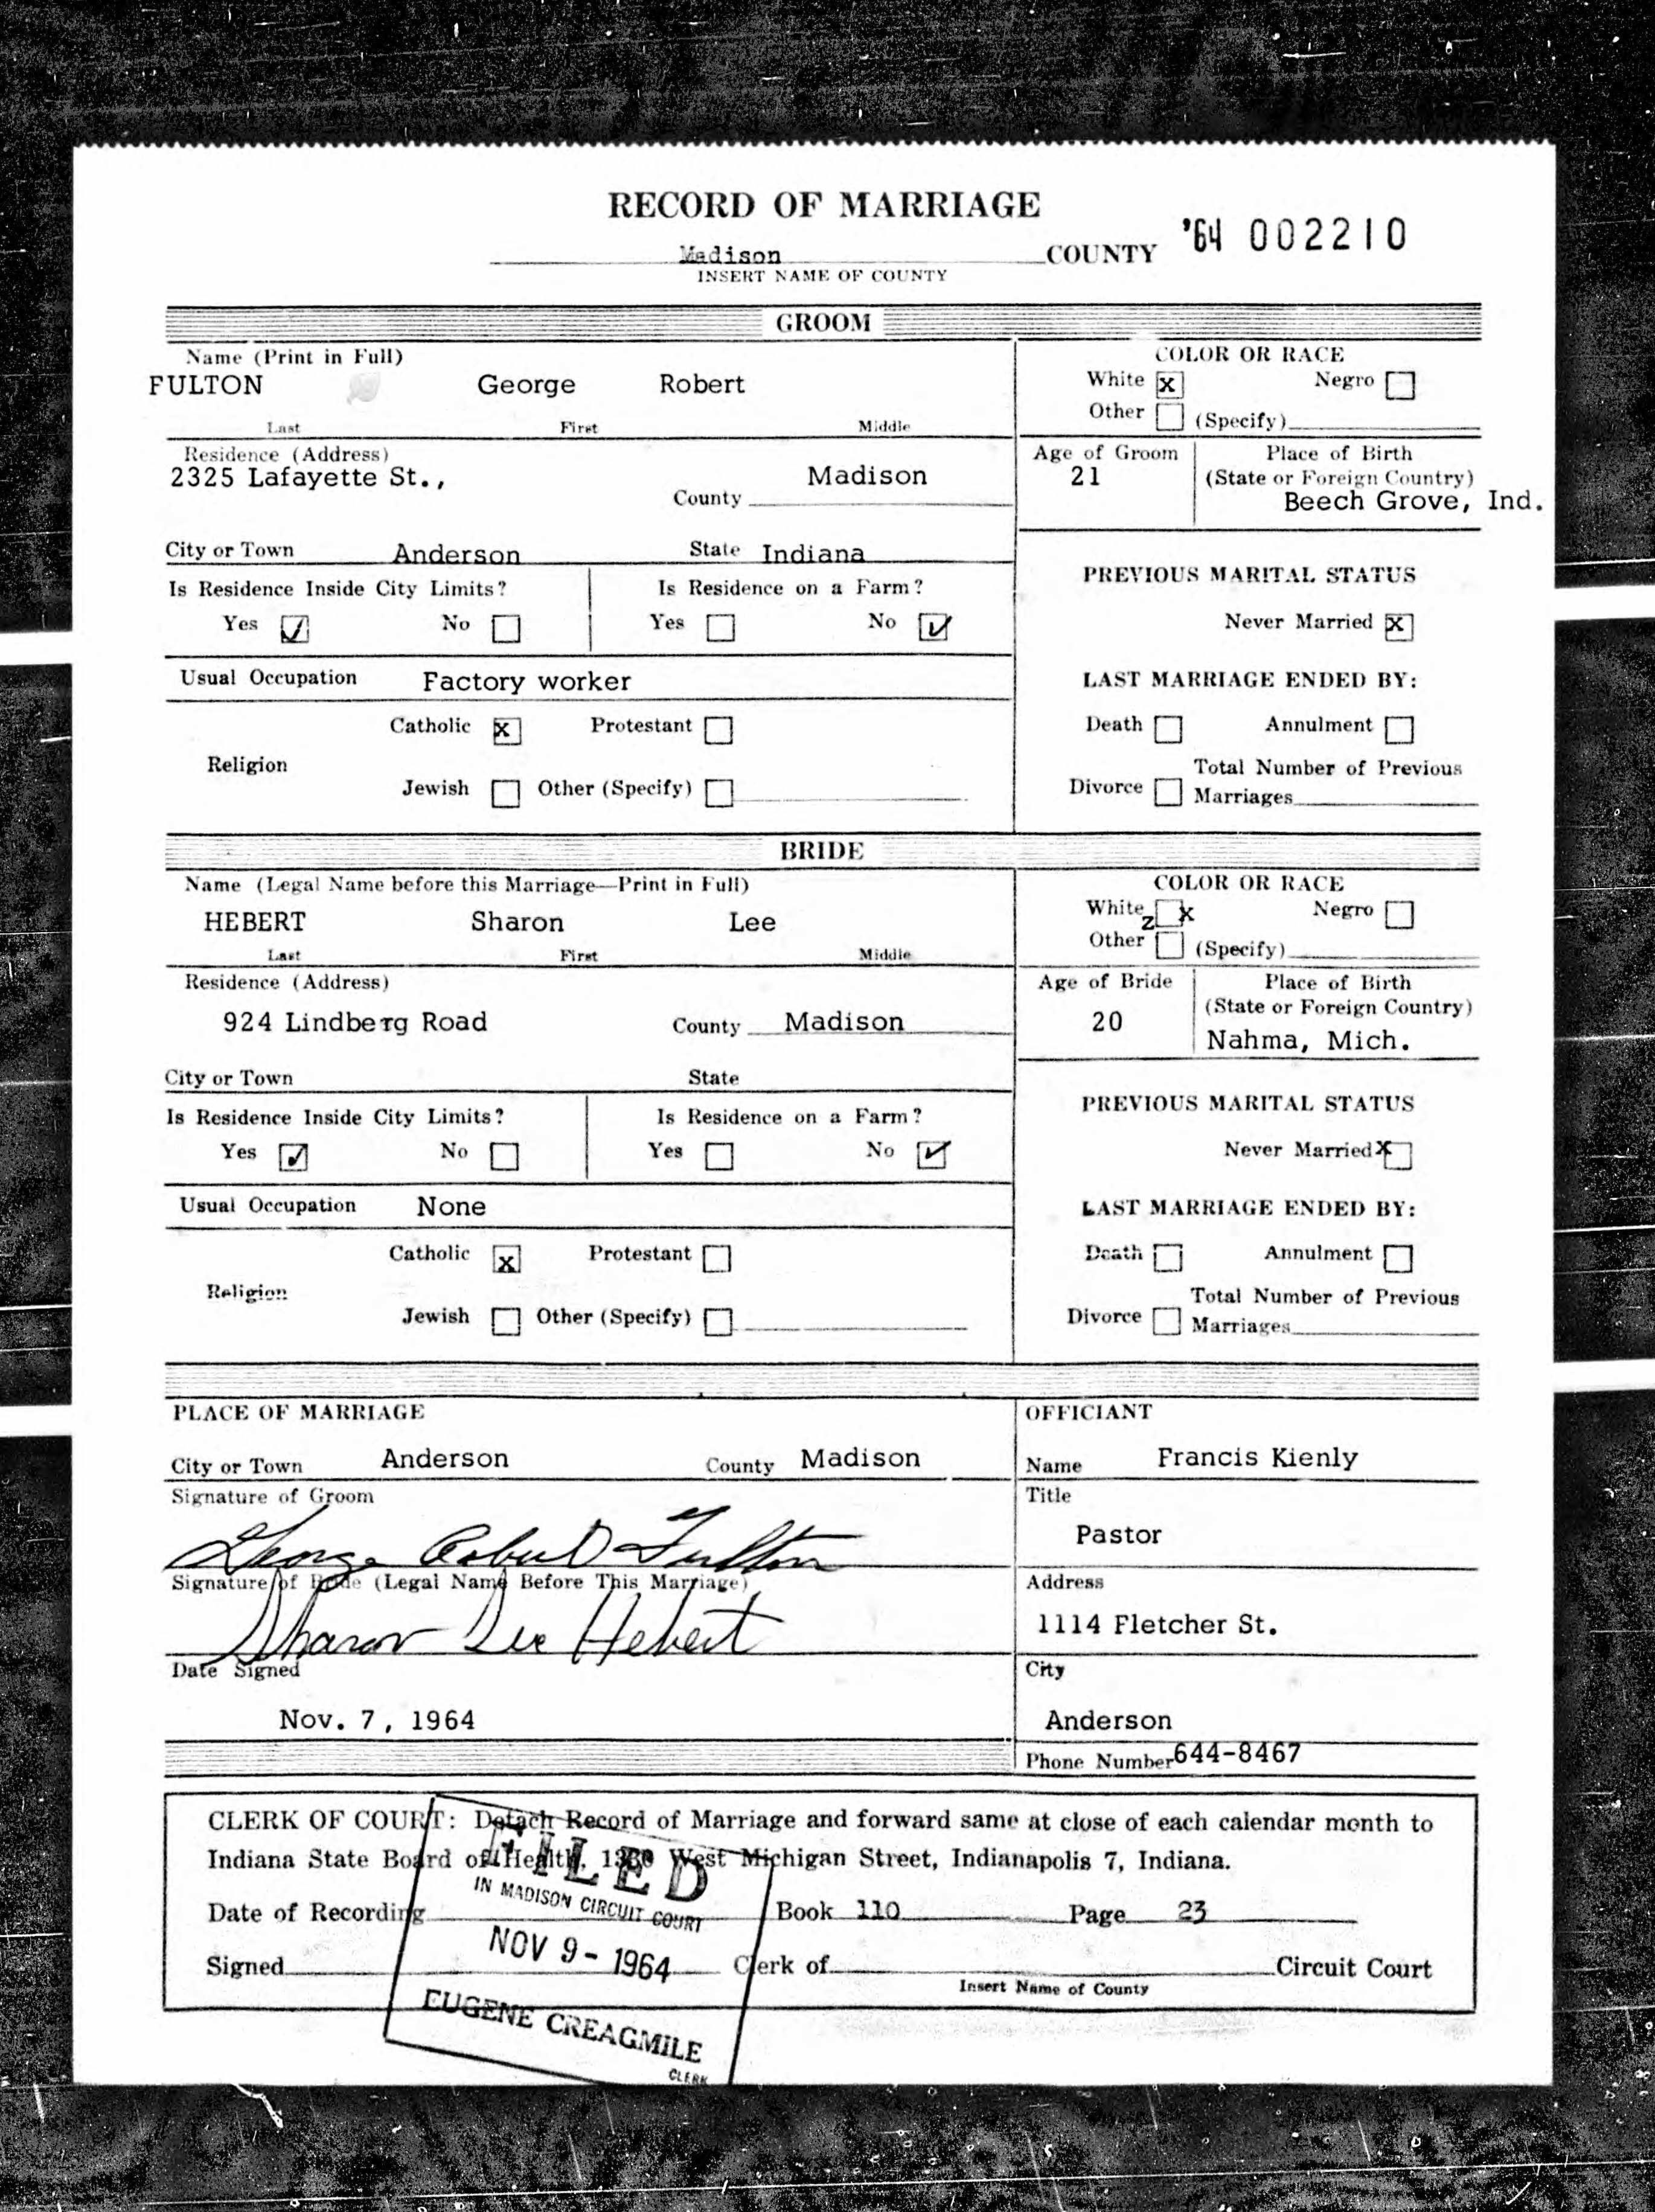 RECORD OF MARRIAGE
'64 002210
Madison COUNTY
INSERT NAME OF COUNTY
GROOM
Name (Print in Full)
FULTON George Robert
Last First Middle
COLOR OR RACE
White x Negro
Other (Specify)
Residence (Address)
2325 Lafayette St.,
County Madison
Age of Groom
21
Place of Birth
(State or Foreign Country)
Beech Grove, Ind.
City or Town Anderson State Indiana
Is Residence Inside City Limits? Is Residence on a Farm?
Yes ✓ No Yes No ✓
PREVIOUS MARITAL STATUS
Never Married x
Usual Occupation Factory worker
LAST MARRIAGE ENDED BY:
Catholic x Protestant
Religion
Jewish Other (Specify)
Death Annulment
Total Number of Previous
Divorce Marriages
BRIDE
Name (Legal Name before this Marriage—Print in Full)
HEBERT Sharon Lee
Last First Middle
COLOR OR RACE
White z x Negro
Other (Specify)
Residence (Address)
924 Lindberg Road County Madison
Age of Bride
20
Place of Birth
(State or Foreign Country)
Nahma, Mich.
City or Town State
Is Residence Inside City Limits? Is Residence on a Farm?
Yes ✓ No Yes No ✓
PREVIOUS MARITAL STATUS
Never Married x
Usual Occupation None
LAST MARRIAGE ENDED BY:
Catholic x Protestant
Religion
Jewish Other (Specify)
Death Annulment
Total Number of Previous
Divorce Marriages
PLACE OF MARRIAGE
City or Town Anderson County Madison
Signature of Groom
George Robert Fulton
Signature of Bride (Legal Name Before This Marriage)
Sharon Lee Hebert
Date Signed
Nov. 7, 1964
OFFICIANT
Name Francis Kienly
Title
Pastor
Address
1114 Fletcher St.
City
Anderson
Phone Number 644-8467
CLERK OF COURT: Detach Record of Marriage and forward same at close of each calendar month to
Indiana State Board of Health, 1330 West Michigan Street, Indianapolis 7, Indiana.
Date of Recording Book 110 Page 23
Signed Clerk of Circuit Court
Insert Name of County
FILED
IN MADISON CIRCUIT COURT
NOV 9 - 1964
EUGENE CREAGMILE
CLERK